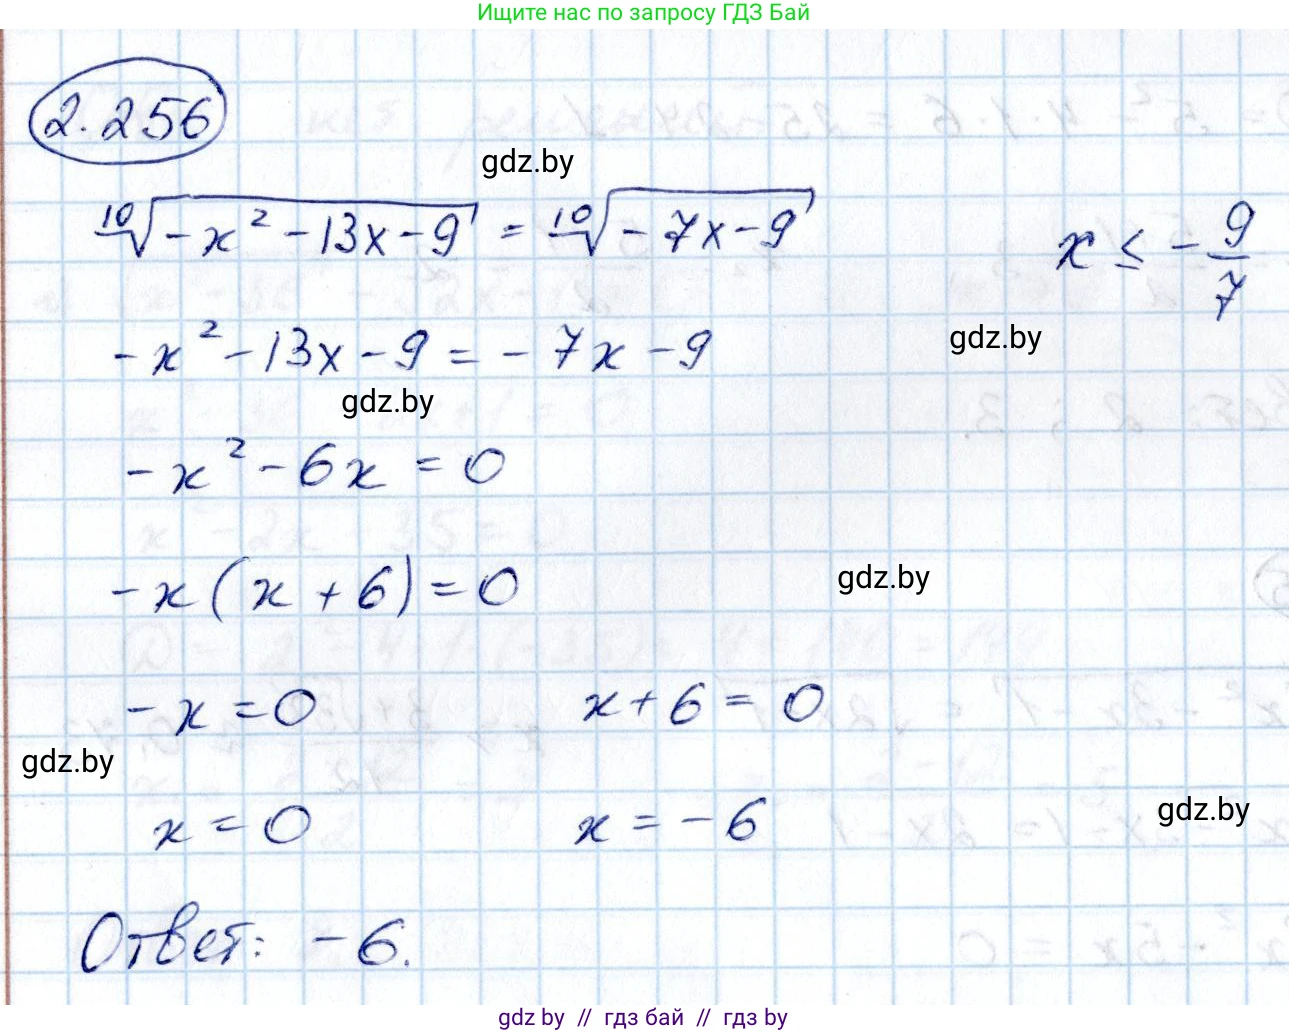 Ищите нас по запросу ГДЗ Бай
2.256
gdz.by
¹⁰√(-x² - 13x - 9) = ¹⁰√(-7x - 9)
x ≤ -9/7
gdz.by
-x² - 13x - 9 = -7x - 9
gdz.by
-x² - 6x = 0
gdz.by
-x(x + 6) = 0
-x = 0 x + 6 = 0
gdz.by
gdz.by
x = 0 x = -6
Ответ: -6.
gdz.by // гдз бай // гдз by